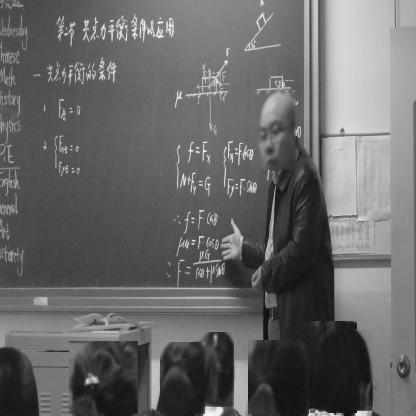 Wednesday
Chinese
Math
History
Physics
P.E
English
Art
第二节 共点力平衡条件的应用
一 共点力平衡的条件
1. F合=0
2. Fx合=0
Fy合=0
F
μ
G
f=Fx
N+Fy=G
Fx=Fcosθ
Fy=Fsinθ
∴ f=Fcosθ
μN=Fcosθ
∴ F=μG/(cosθ+μsinθ)